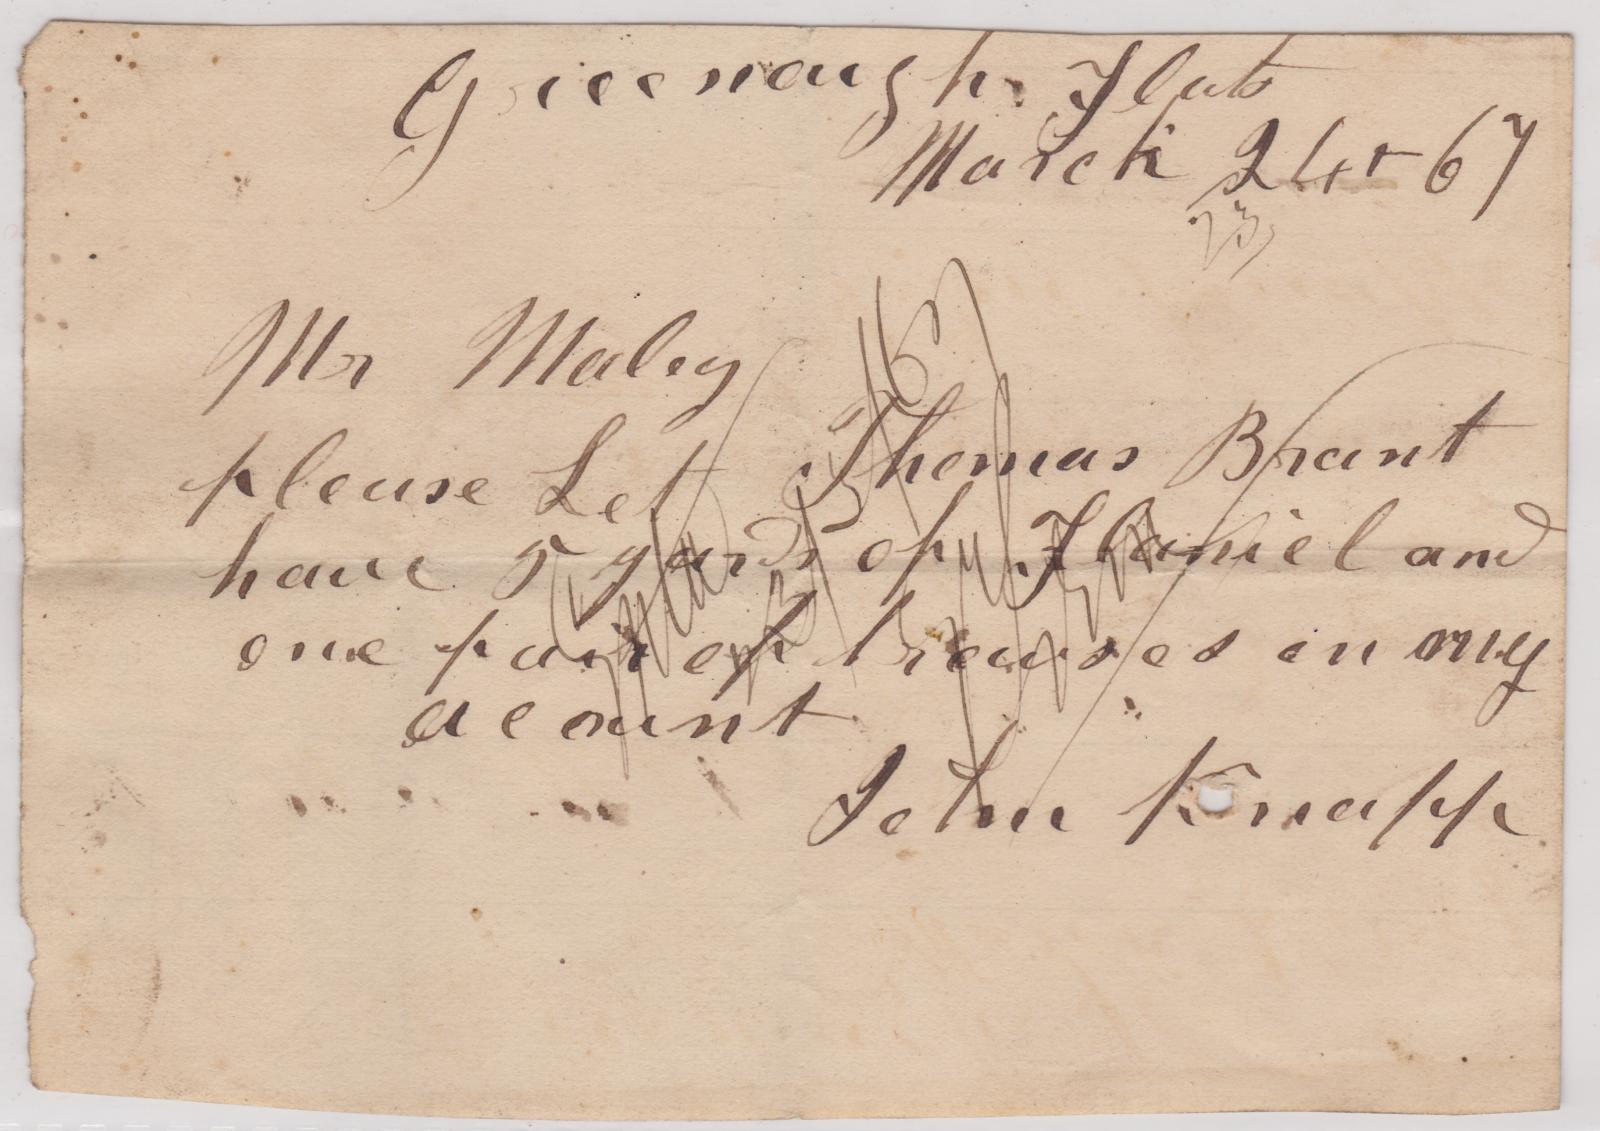 Greenough Flats
March 24th 67
23
Mr Maley
please Let Thomas Brant
have 5 yards of Flaniel and
one pair of trowses on my
acount
John Knapp